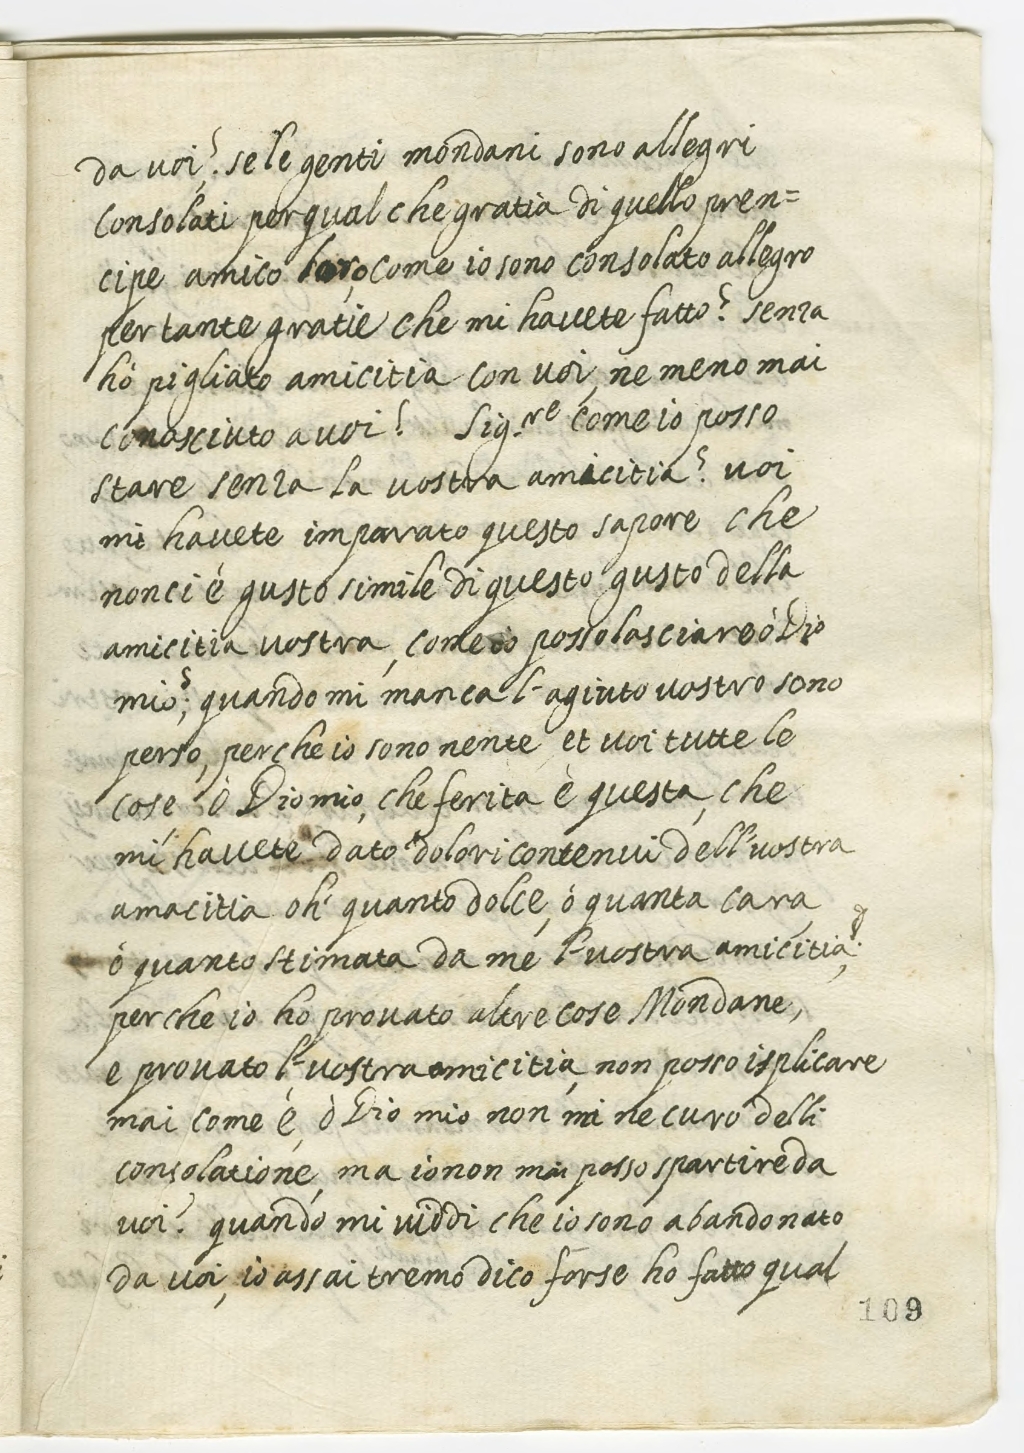 da voi? se le genti mondani sono allegri
consolati per qual che gratia di quello pren=
cipe amico loro, come io sono consolato allegro
per tante gratie che mi havete fatto? senza
hò pigliato amicitia con voi, ne meno mai
conosciuto a voi? Sig.re come io posso
stare senza la vostra amicitia? voi
mi havete imparato questo sapore che
non ci é gusto simile di questo gusto della
amicitia vostra, come io posso lasciare ó Dio
mio?; quando mi manca l'agiuto vostro sono
perso, perche io sono nente, et voi tutte le
cose. Ó Dio mio, che ferita è questa, che
mi havete dato dolori contenui dell'vostra
amacitia oh' quanto dolce, ó quanta cara,
ó quanto stimata da me l'vostra amicitia?
perche io ho provato altre cose Mondane,
e provato l'vostra amicitia, non posso isplicare
mai come é, ò Dio mio non mi ne curo delli
consolatione, ma io non mai posso spartire da
voi? quando mi viddi che io sono abandonato
da voi, io assai tremo dico forse ho fatto qual
109